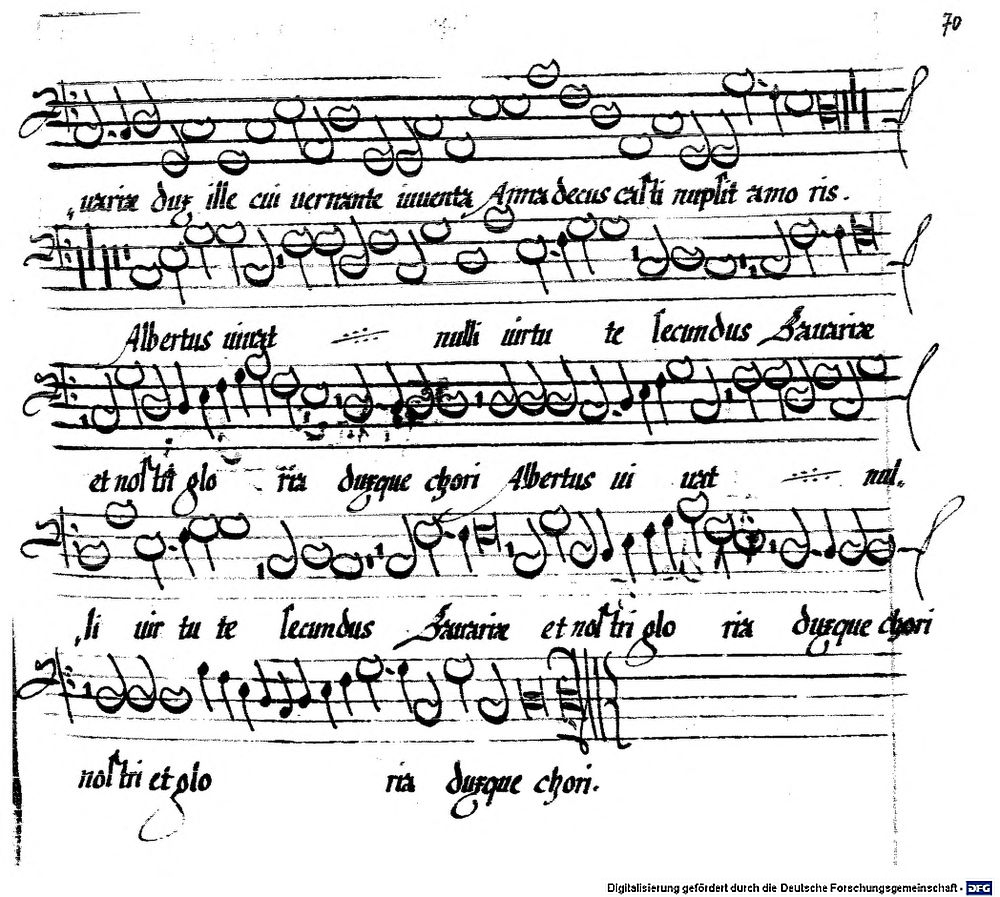 70
„uariæ dux ille cui uernante iuuenta Anna decus casti nupsit amo ris.
Albertus uiuat nulli uirtu te secundus Bauariæ
et nostri glo ria duxque chori Albertus ui uat nul„
„li uir tu te secundus Bauariæ et nostri glo ria duxque chori
nostri et glo ria duxque chori.
Digitalisierung gefördert durch die Deutsche Forschungsgemeinschaft - DFG